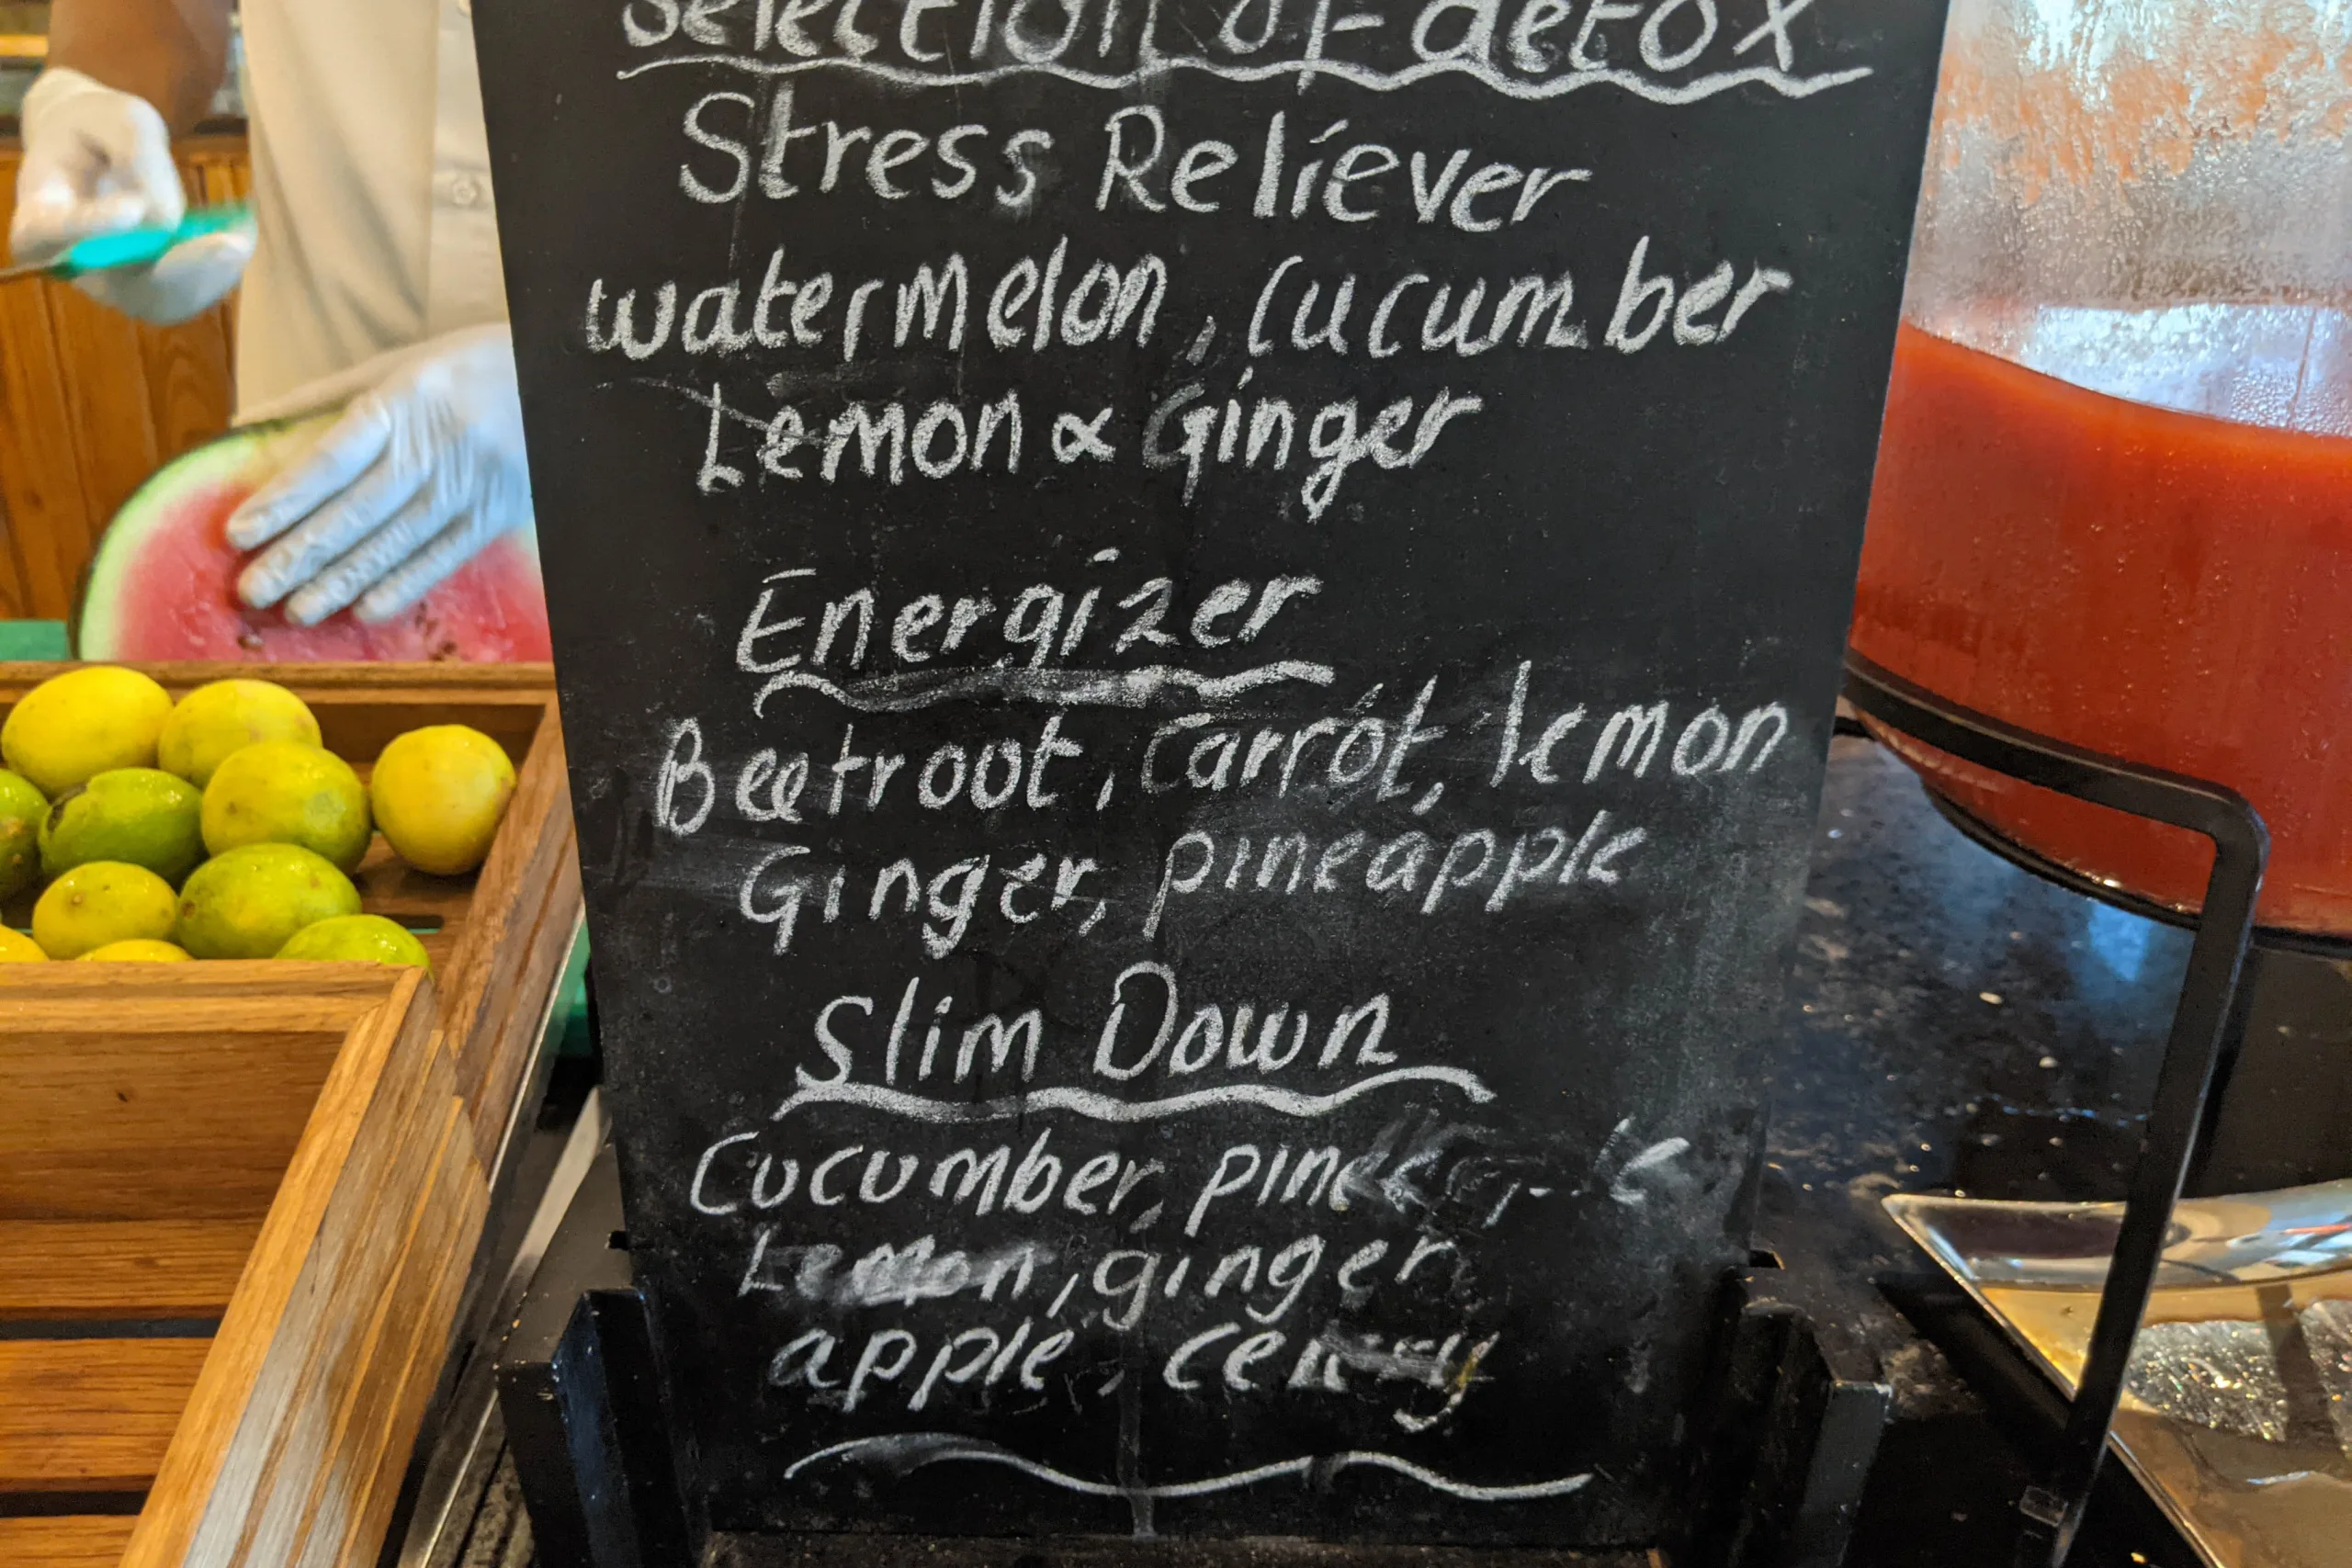 Selection of detox
Stress Reliever
watermelon, cucumber
Lemon & Ginger
Energizer
Beetroot, Carrot, lemon
Ginger, pineapple
Slim Down
Cucumber,
Lemon, ginger
apple, celery